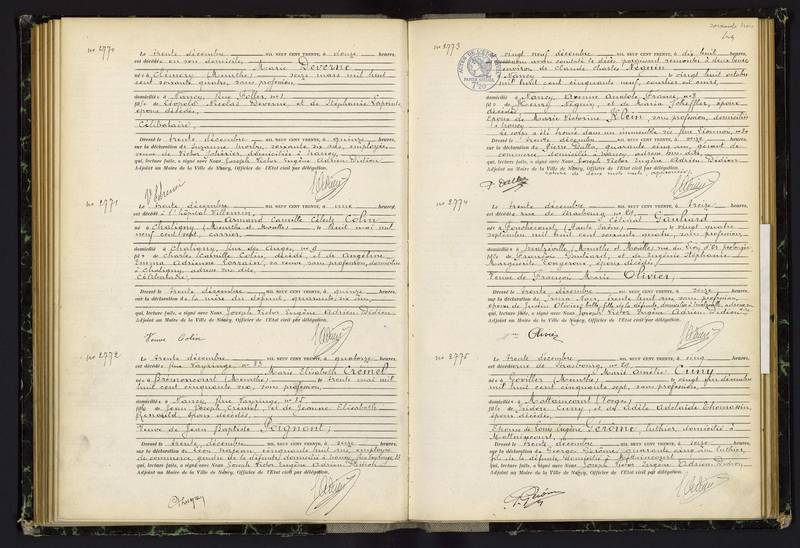 No 2770
Le trente décembre MIL NEUF CENT TRENTE, à douze heures,
est décédée en son domicile, Marie Deverne
née à Clémery (Meurthe), seize mars mil huit
cent soixante quatre, sans profession,
domiciliée à Nancy, Rue
fille de Léopold Nicolas Deverne, et de Stéphanie Lapointe
époux décédés,
Célibataire,
Dressé le trente décembre MIL NEUF CENT TRENTE, à quinze heures,
sur la déclaration de Suzanne soixante six ans, employée,
veuve de Victor domiciliée à Nancy,
qui, lecture faite, a signé avec Nous Joseph Victor Eugène Adrien
Adjoint au Maire de la Ville de Nancy, Officier de l'Etat civil par délégation.
No 2771
Le trente décembre MIL NEUF CENT TRENTE, à une heures,
est décédé à l'hôpital Villemin, Armand Camille Céleste Colin
né à Chaligny (Meurthe & Moselle) le huit mai mil
neuf cent sept, carrier,
domicilié à Chaligny, Rue des Anges, no 9
fils de Charles Camille Colin, décédé, et de Angeline
Emma Adrienne Lorrain, sa veuve, sans profession, domiciliée
à Chaligny, adresse susdite,
Célibataire,
Dressé le trente décembre MIL NEUF CENT TRENTE, à quinze heures,
sur la déclaration de la mère du défunt, quarante six ans,
qui, lecture faite, a signé avec Nous Joseph Victor Eugène Adrien
Adjoint au Maire de la Ville de Nancy, Officier de l'Etat civil par délégation.
Veuve Colin
No 2772
Le trente décembre MIL NEUF CENT TRENTE, à quatorze heures,
est décédée Rue Vayringe, no 83 Marie Elisabeth Crémel
née à (Meurthe) le trente mai mil
huit cent cinquante six, sans profession,
domiciliée à Nancy, Rue Vayringe, no 85
fille de Jean Joseph Crémel, et de Jeanne Elisabeth
époux décédés,
Veuve de Jean Baptiste Poignant,
Dressé le trente décembre MIL NEUF CENT TRENTE, à seize heures,
sur la déclaration de Léon cinquante huit ans, employé
de commerce, gendre de la défunte, domicilié à Nancy,
qui, lecture faite, a signé avec Nous Joseph Victor Eugène Adrien
Adjoint au Maire de la Ville de Nancy, Officier de l'Etat civil par délégation.
No 2773
vingt neuf décembre MIL NEUF CENT TRENTE, à dix huit heures,
avons constaté le décès paraissant remonter à deux heures
environ de Claude Charles Néguin
Nancy le vingt octobre
mil huit cent cinquante neuf, courtier en
domicilié à Nancy, Avenue Anatole France, no 8
fils de Henry Néguin, et de Marie Scheffler, époux
décédés,
Epoux de Marie Victorine Klein, sans profession, domiciliée
à Nancy
Le corps a été trouvé dans un immeuble sis Rue
Dressé le trente décembre MIL NEUF CENT TRENTE, à heures,
sur la déclaration de Pierre Dalla, quarante cinq ans, gérant de
commerce, domicilié à Nancy,
qui, lecture faite, a signé avec Nous Joseph Victor Eugène Adrien
Adjoint au Maire de la Ville de Nancy, Officier de l'Etat civil par délégation.
P. Dalla
No 2774
Le trente décembre MIL NEUF CENT TRENTE, à treize heures,
est décédée rue de Strasbourg no 29 Gauliard
née à (Haute Saône) le vingt quatre
septembre mil huit cent soixante quatre, sans profession,
domiciliée à Malzéville, Meurthe et Moselle, rue du Lion d'Or
fille de François Gauliard, et de Eugénie Stéphanie
Marguerite époux décédés,
Veuve de François Marie Olivier,
Dressé le trente décembre MIL NEUF CENT TRENTE, à seize heures,
sur la déclaration de trente huit ans, sans profession,
qui, lecture faite, a signé avec Nous Joseph Victor Eugène Adrien
Adjoint au Maire de la Ville de Nancy, Officier de l'Etat civil par délégation.
Olivier
No 2775
Le trente décembre MIL NEUF CENT TRENTE, à cinq heures,
est décédée rue de Strasbourg, no 29 Marie Amélie Cuny
née à Goviller (Meurthe) le vingt un décembre
mil huit cent cinquante sept, sans profession,
domiciliée à Mattaincourt (Vosges)
fille de Isidore Cuny, et de Adèle Adelaïde Thomassin,
époux décédés,
Epouse de Louis Eugène Gérôme, luthier, domicilié à
Mattaincourt,
Dressé le trente décembre MIL NEUF CENT TRENTE, à seize heures,
sur la déclaration de Georges Gérôme, quarante cinq ans, luthier,
fils de la défunte, domicilié à Mattaincourt,
qui, lecture faite, a signé avec Nous Joseph Victor Eugène Adrien
Adjoint au Maire de la Ville de Nancy, Officier de l'Etat civil par délégation.